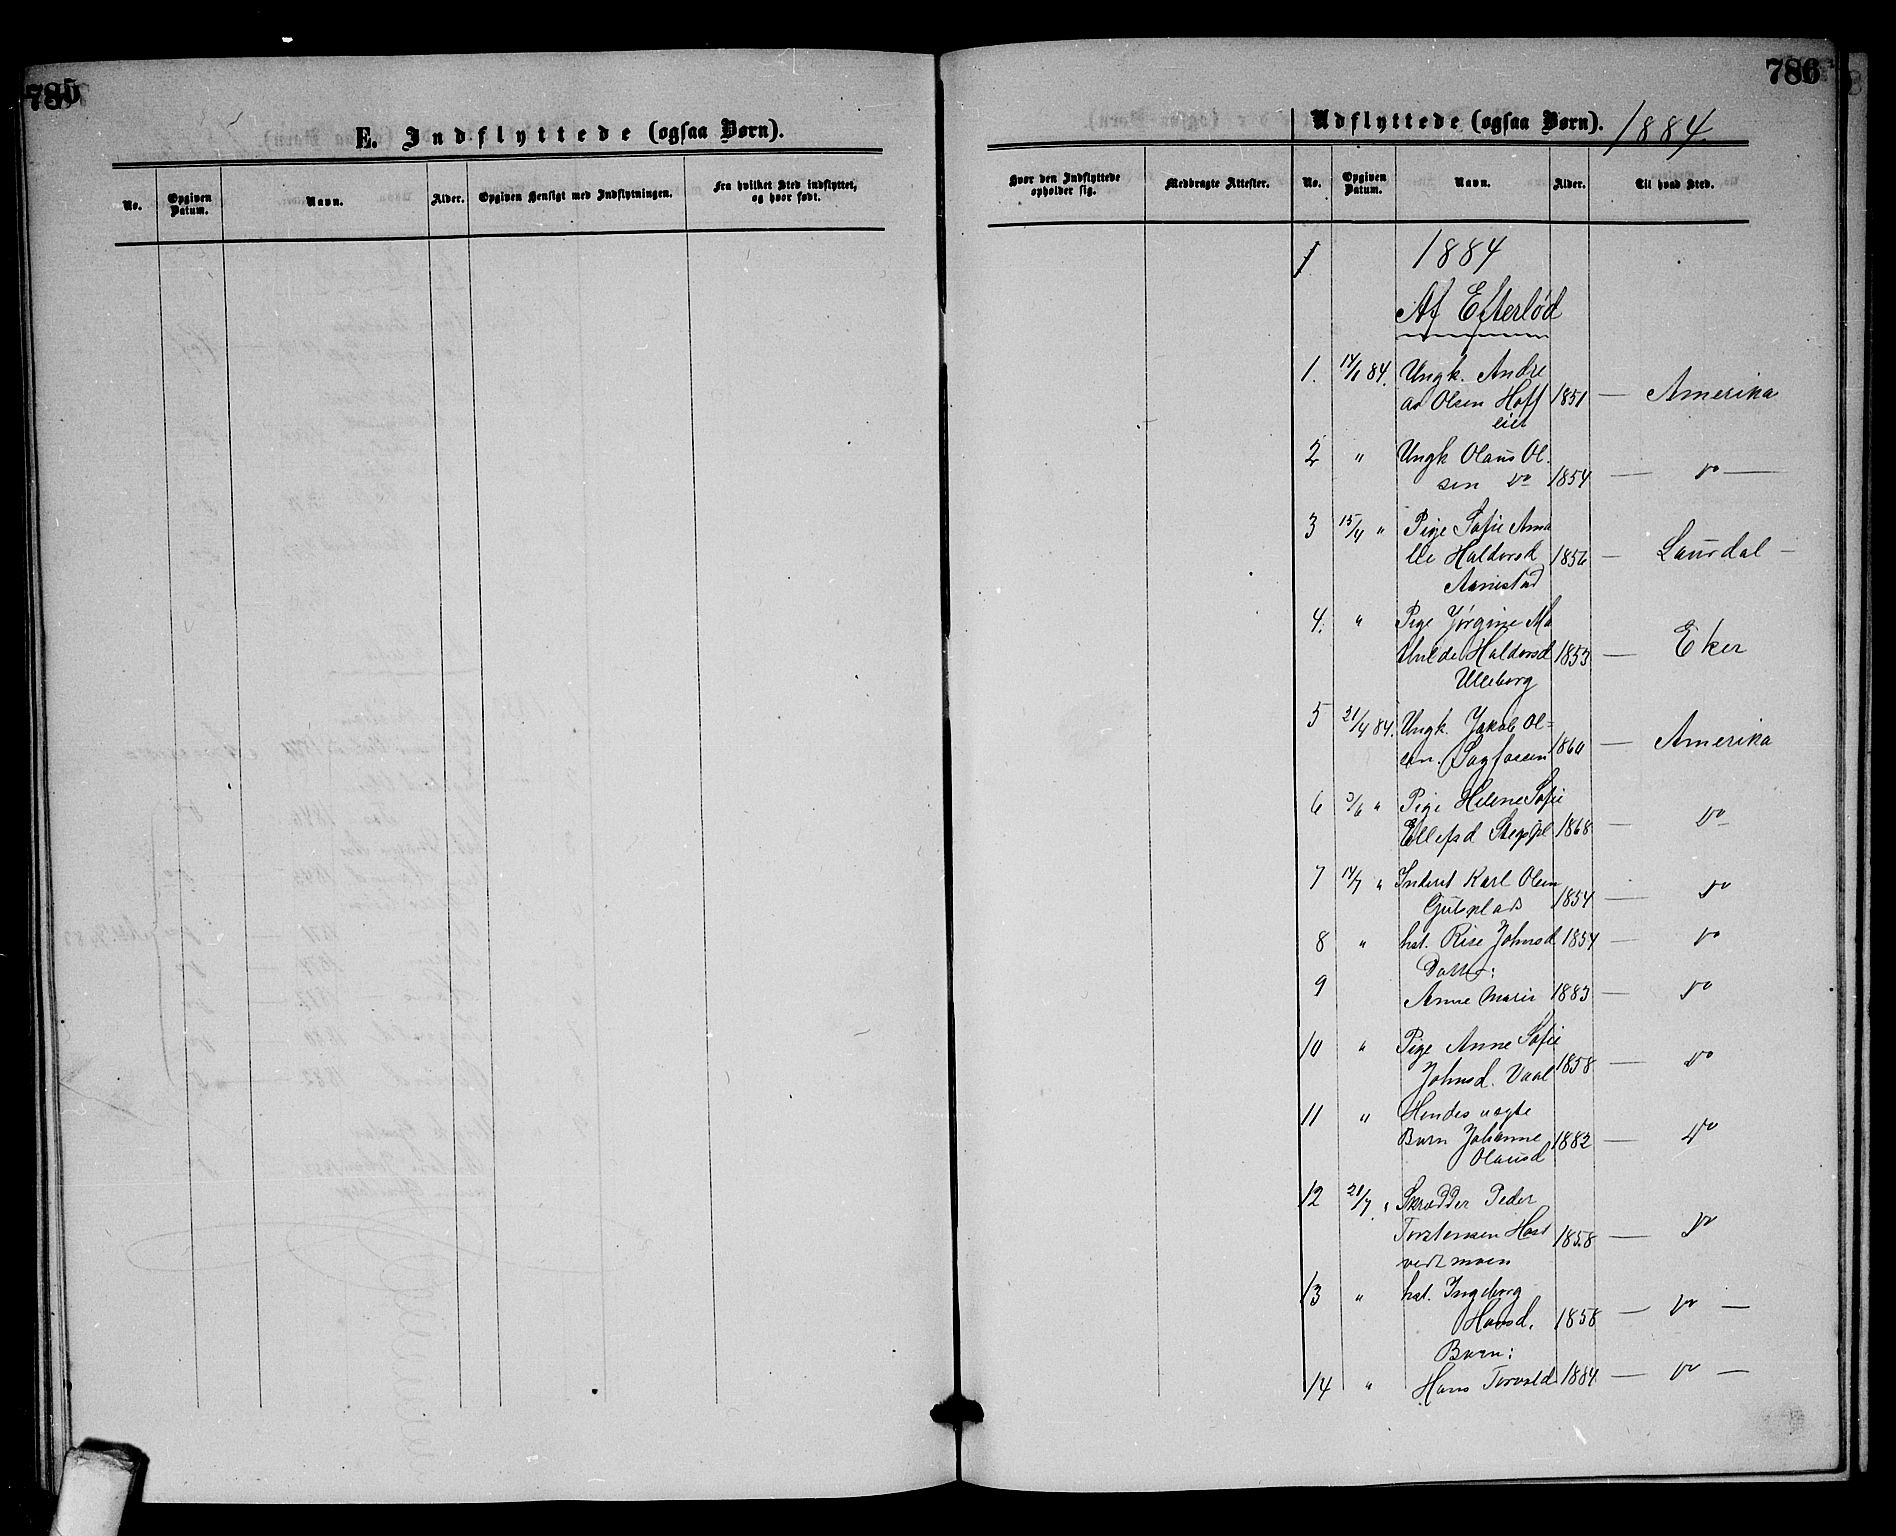 785
E. Indflyttede (ogsaa Børn).
No.
Opgiven Datum.
Navn.
Alder.
Opgiven Hensigt med Indflytningen.
Fra hvilket Sted indflyttet, og hvor født.
786
Udflyttede (ogsaa Børn). 1884.
Hvor den Indflyttede opholder sig.
Medbragte Attester.
No.
Opgiven Datum.
Navn.
Alder.
Til hvad Sted.
1 1884
Af Efterlød
1. 14/1 84. Ungk. Andre
as Olsen Hoff 1851 — Amerika
eier
2 " Ungk Olaus Ol.
sen do 1854 — do —
3 15/4 " Pige Sofie Ama
lie Haldorsd 1856 — Laurdal —
4. " Pige Jørgine Ma
thilde Haldorsd 1853 — Eker
Ulleborg
5 21/4 84. Ungk. Jakob Ol=
sen. Sagfossen 1860 — Amerika
6 3/6 " Pige Helene Sofie
Ellefsd 1868 — do
7 14/7 " Inderst Karl Olsen
1854 — do
8 " hst. Rise Johnsd 1854 — do
Datter:
9 Anne Marie 1883 — do
10 " Pige Anne Sofie
Johnsd. Vaal 1858 — do
11 " Hendes uægte
Barn Johanne 1882 — do
Olausd
12 21/7 " Skrædder Peder
Torstensen Hast 1858 — do
vedtmoen
13 " hst. Ingeborg
Hansd. 1858 — do —
Børn:
14 " Hans Torvald 1884. — do —